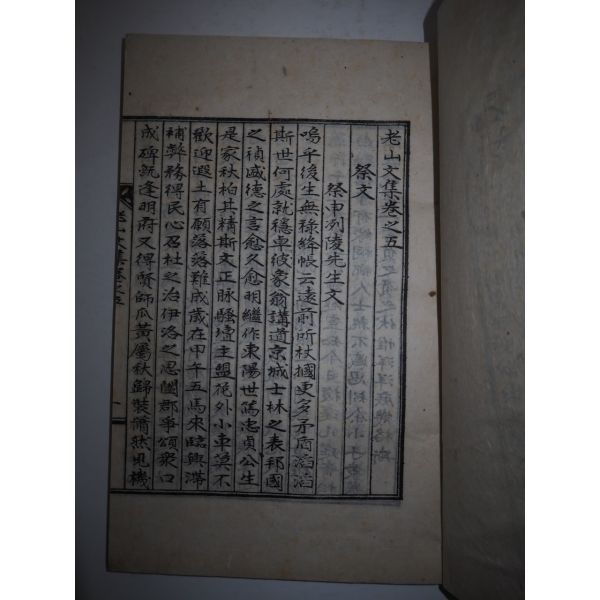 老山文集卷之五
祭文
祭申冽陵先生文
嗚乎後生無祿絳帳云遠前所杖摑更多矛盾滔滔
斯世何處就穩卓彼象翁講道京城士林之表邦國
之禎盛德之言愈久愈明繼作東陽世篤忠貞公生
是家秋柏其精斯文正脉騷壇主盟葩外小車莫不
歡迎遐土有願落落難成歲在甲午五馬來臨興滯
補弊務得民心召杜之治伊洛之恩闔郡事頌衆口
成碑旣逢明府又得賢師瓜黃屬秋歸裝蕭然見機
老山文集卷之五
一